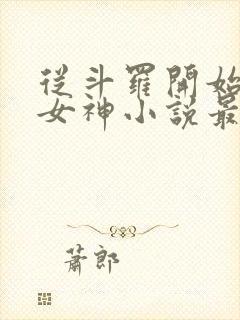 從斗羅開始
女神小說最
蕭郎